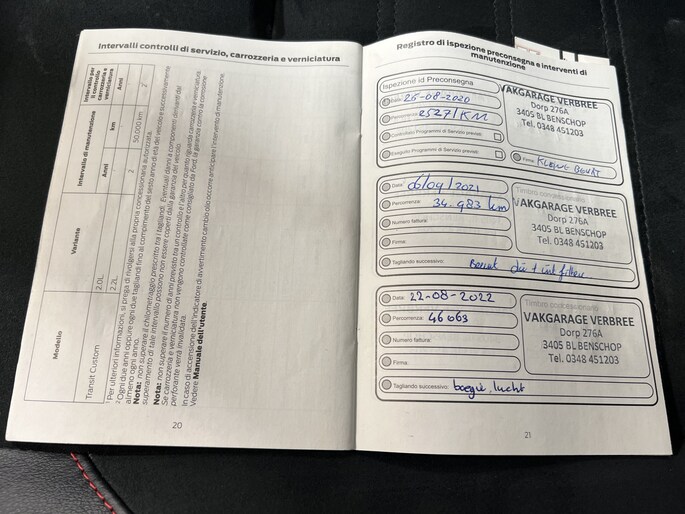 Intervalli controlli di servizio, carrozzeria e verniciatura
Modello
Variante
Intervallo di manutenzione
Intervallo per il controllo carrozzeria e verniciatura
Anni
km
Anni
Transit Custom
2.0L
2.2L
2
50.000 km
2
¹ Per ulteriori informazioni, si prega di rivolgersi alla propria concessionaria autorizzata.
² Ogni due anni oppure ogni due tagliandi fino al compimento del sesto anno di età del veicolo e successivamente
almeno ogni anno.
Nota: non superare il chilometraggio prescritto tra i tagliandi. Eventuali danni a componenti derivanti dal
superamento di tale intervallo possono non essere coperti dalla garanzia del veicolo.
Nota: non superare il numero di anni previsto tra un controllo e l'altro per quanto riguarda carrozzeria e verniciatura.
Se carrozzeria e verniciatura non vengono controllate come consigliato da Ford, la garanzia contro la corrosione
perforante verrà invalidata.
In caso di accensione dell'indicatore di avvertimento cambio olio occorre anticipare l'intervento di manutenzione.
Vedere Manuale dell'utente.
20
Registro di ispezione preconsegna e interventi di
manutenzione
Ispezione id Preconsegna
Data: 25-08-2020
Percorrenza: 25271 KM
Controllato Programmi di Servizio previsti
Eseguito Programmi di Servizio previsti
VAKGARAGE VERBREE
Dorp 276A
3405 BL BENSCHOP
Tel. 0348 451203
Firma: Kleine Beurt
Data: 6/09/2021
Percorrenza: 34.983 km
Numero fattura:
Firma:
Timbro concessionario
VAKGARAGE VERBREE
Dorp 276A
3405 BL BENSCHOP
Tel. 0348 451203
Tagliando successivo:
Data: 22-08-2022
Percorrenza: 46063
Numero fattura:
Firma:
Timbro concessionario
VAKGARAGE VERBREE
Dorp 276A
3405 BL BENSCHOP
Tel. 0348 451203
Tagliando successivo: lucht
21